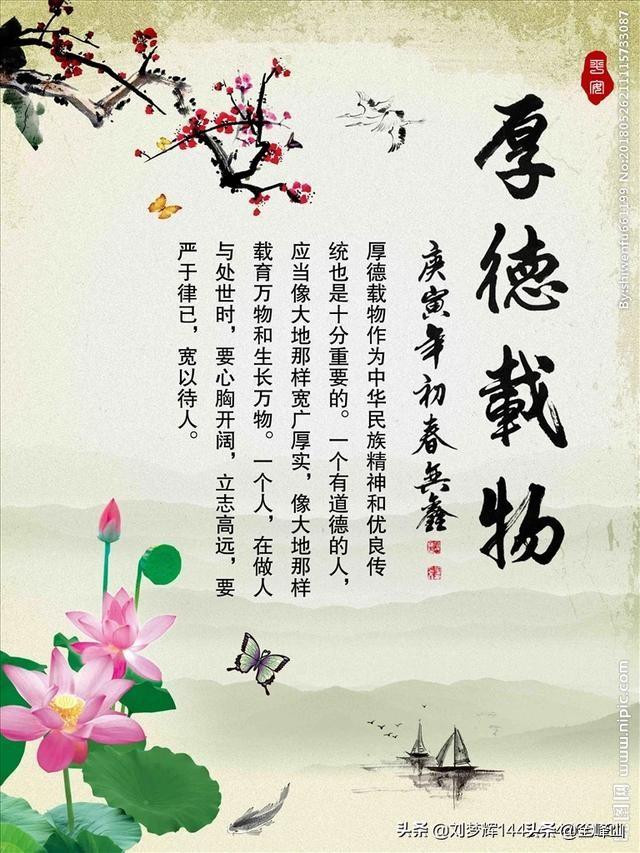 平安
厚德載物
庚寅年初春兵鑫
厚德载物作为中华民族精神和优良传
统也是十分重要的。一个有道德的人，
应当像大地那样宽广厚实，像大地那样
载育万物和生长万物。一个人，在做人
与处世时，要心胸开阔，立志高远，要
严于律已，宽以待人。
By:shiwenfu661199 No:20180526211115733087
www.nipic.com
头条@刘梦辉144